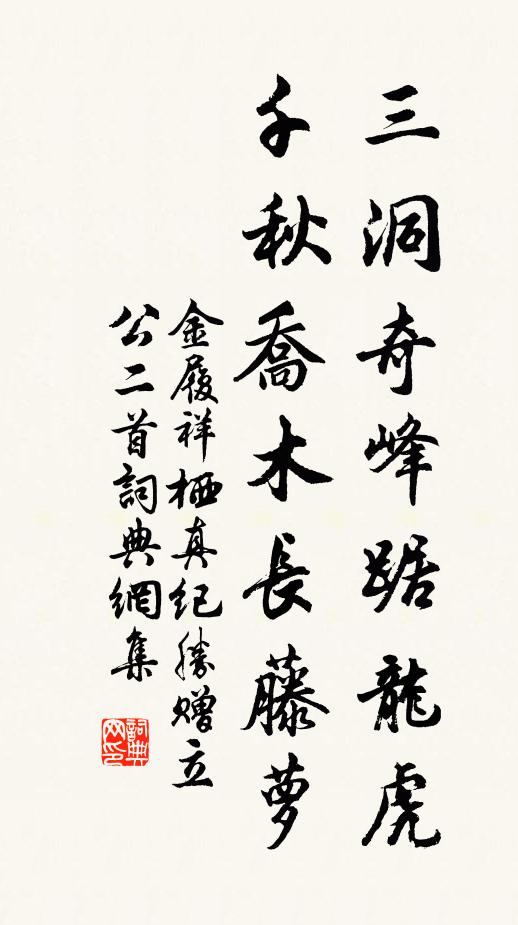 三洞奇峰踞龍虎
千秋喬木長藤夢
金履祥栖真纪勝赠立
公二首詞典網集
詞典网印